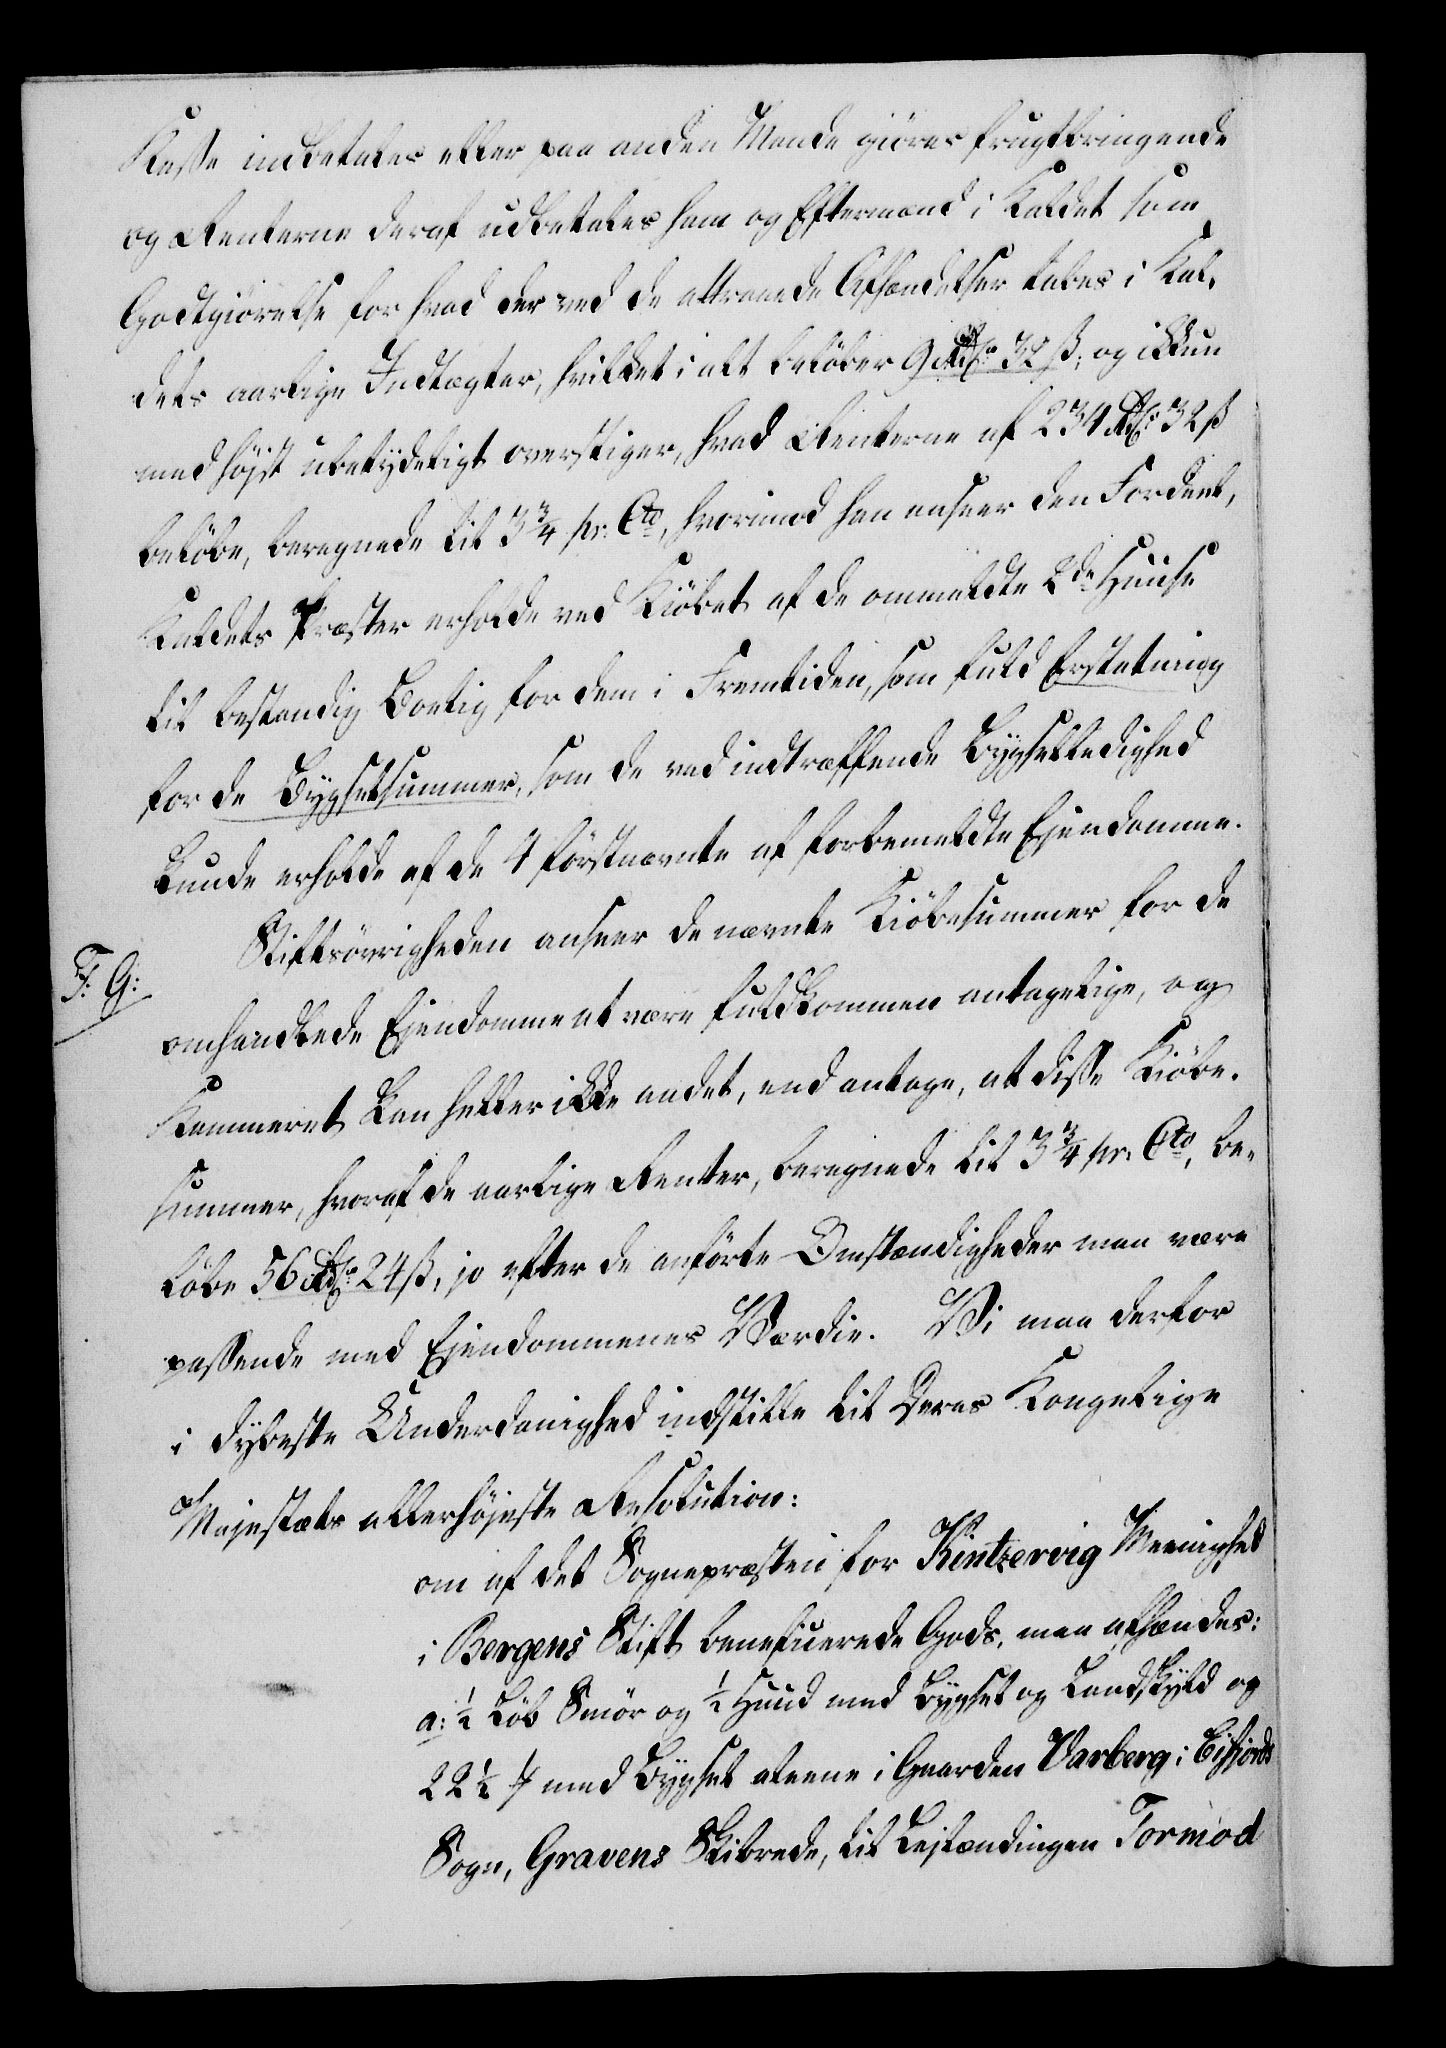 Kasse indbetales eller paa anden Maade giöres frugtbringende
og Renterne deraf udbetales ham og Eftermænd i Kaldet som
Godtgiörelse for hvad der ved de attraaede Afhændelser tabes i Kal-
dets aarlige Indtægter, hvilket i alt belöber 9 Rdlr 32 ß, og ikkun
med höjst ubetydeligt overstiger, hvad Renterne af 234 Rdlr 32 ß
belöbe, beregnede til 3 3/4 pr. Cto, hvorimod han anseer den Fordeel,
Kaldets Præster erholde ved Kiöbet af de ommeldte 2de Huuse
til bestandig Boelig for dem i Fremtiden, som fuld Erstatning
for de Bygselsummer, som de ved indtræffende Bygselledighed
kunde erholde af de 4 förstnævnte af forbemeldte Ejendomme.
Stiftsövrigheden anseer de nævnte Kiöbesummer for de
F: G:
omhandlede Ejendomme at være fuldkommen antagelige, og
Kammeret kan heller ikke andet, end antage, at disse Kiöbe-
summer, hvoraf de aarlige Renter, beregnede til 3 3/4 pr. Cto, be-
löbe 56 Rdlr 24 ß, jo efter de anförte Omstændigheder maa være
passende med Ejendommenes Værdie. Vi maa derfor
i dybeste Underdanighed indstille til Deres Kongelige
Majestæts allerhöjeste Resolution:
om af det Sognepræsten for Kintzervig Meenighed
i Bergens Stift beneficerede Gods, maa afhændes:
a: 1/2 Löb Smör og 1/2 Huud med Bygsel og Landskyld og
22 1/2 # med Bygsel alene i Gaarden Varberg i Eifiords
Sogn, Gravens Skibrede, til Lejlændingen Tormod